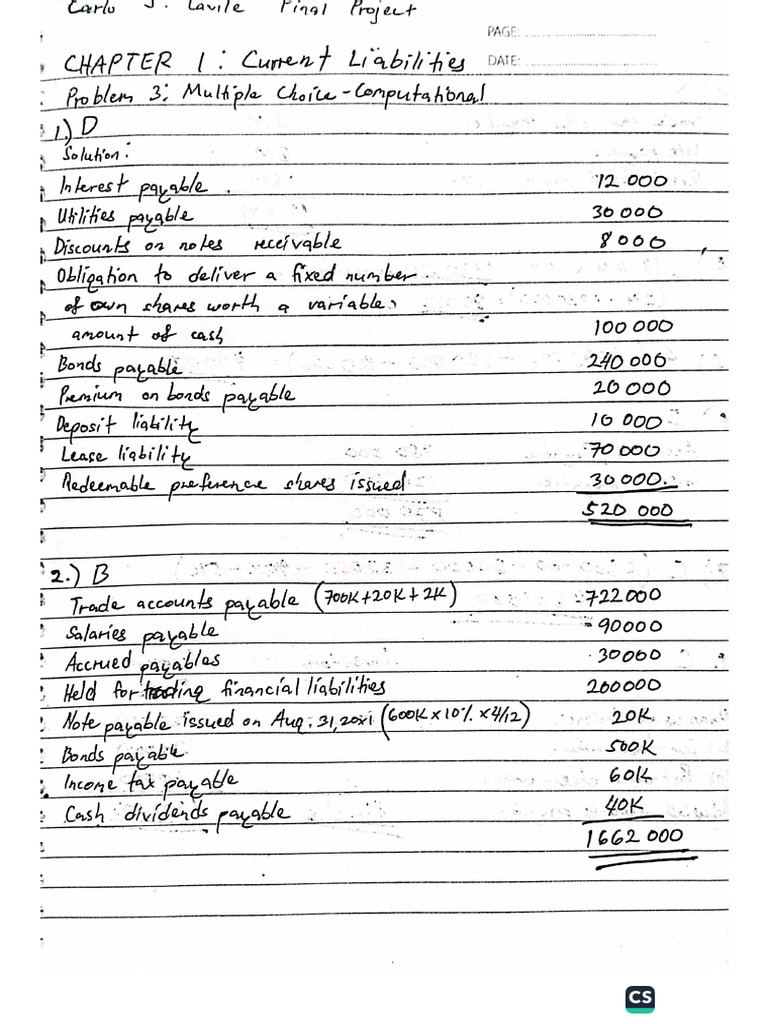 Carlo J. Lavile Final Project
PAGE:
CHAPTER 1: Current Liabilities DATE:
Problem 3: Multiple Choice-Computational
1.) D
Solution:
Interest payable 12 000
Utilities payable 30 000
Discounts on notes receivable 8000
Obligation to deliver a fixed number
of own shares worth a variable
amount of cash 100 000
Bonds payable 240 000
Premium on bonds payable 20 000
Deposit liability 10 000
Lease liability 70 000
Redeemable preference shares issued 30 000.
520 000
2.) B
Trade accounts payable (700K+20K+2K) 722000
Salaries payable 90000
Accrued payables 30000
Held for trading financial liabilities 200000
Note payable issued on Aug. 31, 20x1 (600K x 10% x 4/12) 20K
Bonds payable 500K
Income tax payable 60K
Cash dividends payable 40K
1662 000
CS